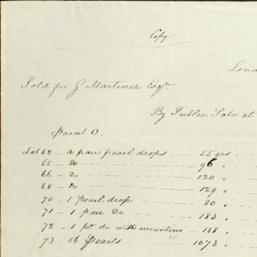 Copy
Lond
Sold for J Martinez Esqre
By Public Sale at
Parcel O.
Lot 62 - a pair pearl drops - 55 grs
65 - Do - 96 -
66 - Do - 120 -
68 - Do - 129
70 - 1 Pearl drop - 80
71 - 1 pair Do - 183
72 - 1 pr do with mounting - 188
73 - 56 Pearls - 1073 -